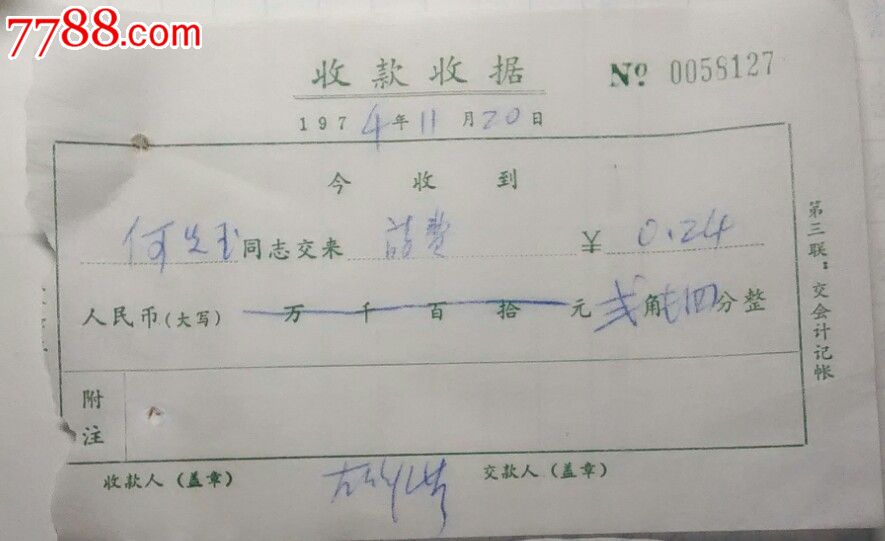 7788.com
收款收据
Nº 0058127
1974年11月20日
今收到
何 同志交来 费 ¥ 0.24
人民币(大写) 万千百拾元弍角四分整
附注
收款人(盖章) 交款人(盖章)
第三联：交会计记帐